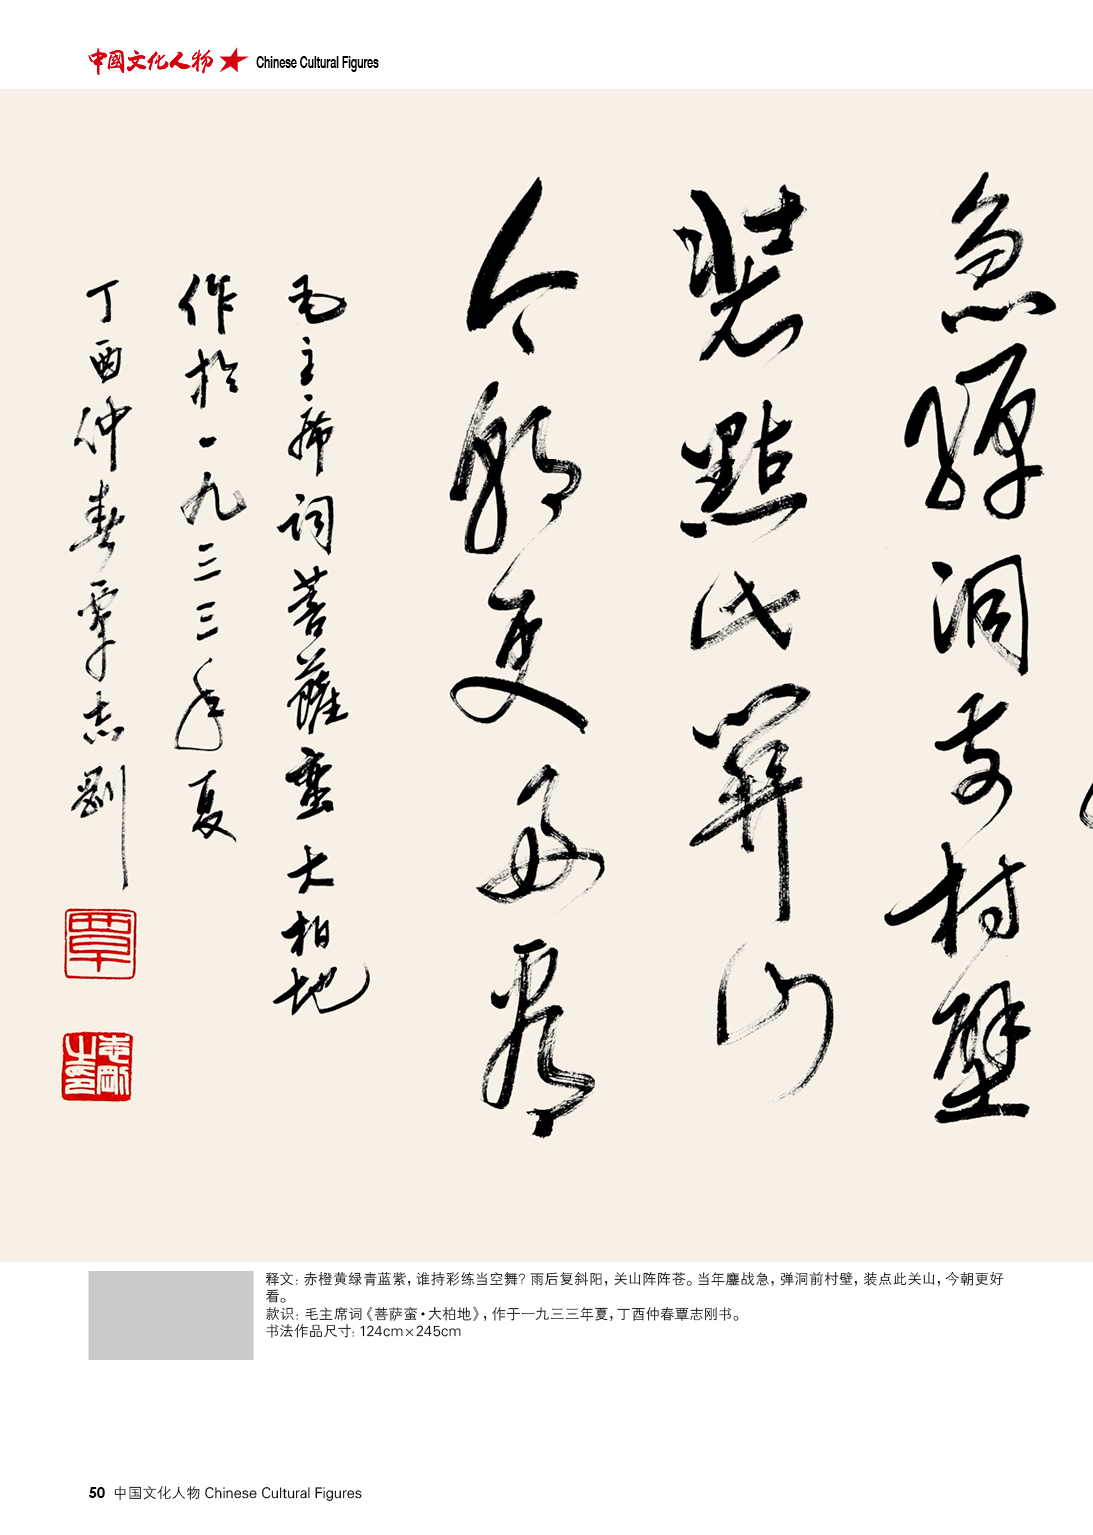 中國文化人物 Chinese Cultural Figures
急弹洞前村壁
装點此關山
今朝更好看
毛主席词菩薩蛮大柏地
作於一九三三年夏
丁酉仲春覃志剛
覃
志剛之印
释文：赤橙黄绿青蓝紫，谁持彩练当空舞？雨后复斜阳，关山阵阵苍。当年鏖战急，弹洞前村壁，装点此关山，今朝更好
看。
款识：毛主席词《菩萨蛮·大柏地》，作于一九三三年夏，丁酉仲春覃志刚书。
书法作品尺寸：124cm×245cm
50 中国文化人物 Chinese Cultural Figures